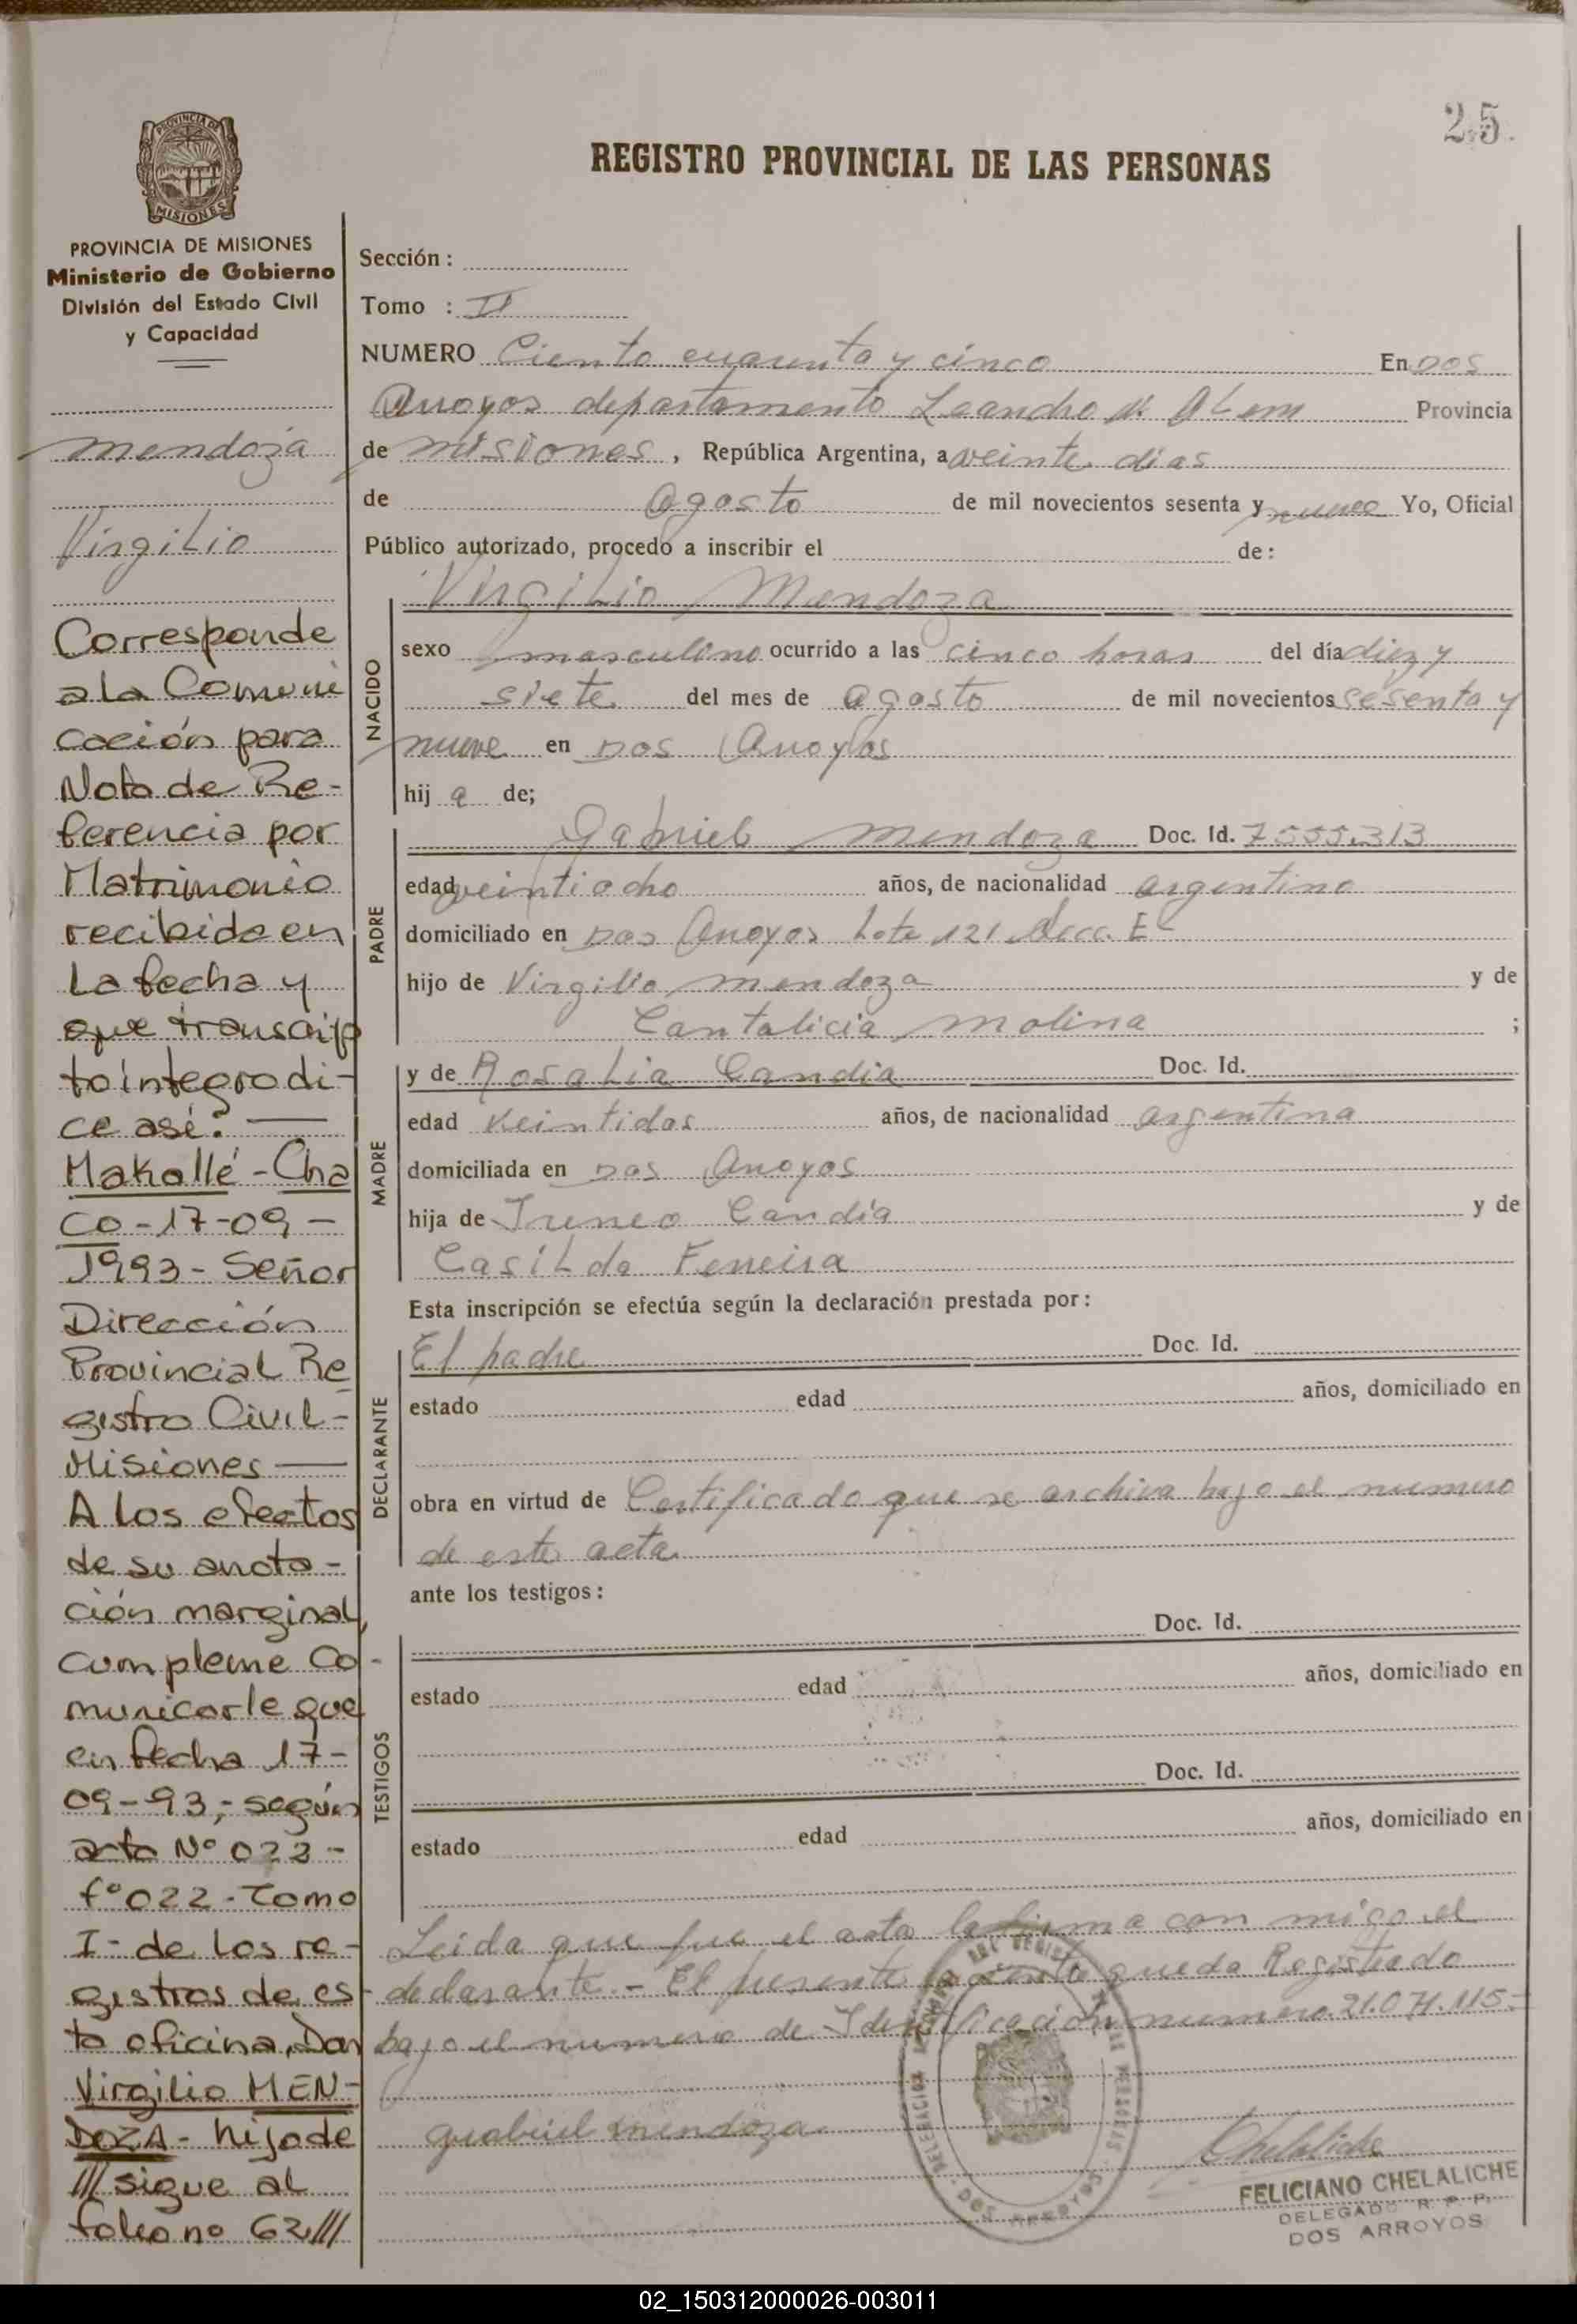 25.
REGISTRO PROVINCIAL DE LAS PERSONAS
PROVINCIA DE
MISIONES
PROVINCIA DE MISIONES
Ministerio de Gobierno
División del Estado Civil
y Capacidad
Mendoza
Virgilio
Corresponde
a la Comuni
cación para
Nota de Re-
ferencia por
Matrimonio
recibida en
La fecha y
que transcrip
to integro di-
ce así:
Makallé - Cha
co - 17-09-
1993 - Señor
Dirección
Provincial Re
gistro Civil -
Misiones
A los efectos
de su anota-
ción marginal,
cumpleme co-
municarle que
en fecha 17-
09-93,- según
acta Nº 022 -
fº 022 - Tomo
I - de los re-
gistros de es-
ta oficina, Don
Virgilio MEN-
DOZA - hijo de
/// sigue al
folio nº 62 ///
Sección :
Tomo : II
NUMERO Ciento cuarenta y cinco En Dos
Arroyos departamento Leandro N. Alem Provincia
de Misiones, República Argentina, a veinte dias
de Agosto de mil novecientos sesenta y nueve Yo, Oficial
Público autorizado, procedo a inscribir el de:
Virgilio Mendoza
NACIDO
sexo masculino ocurrido a las cinco horas del día diez y
siete del mes de Agosto de mil novecientos sesenta y
nueve en Dos Arroyos
hij o de;
PADRE
Gabriel Mendoza Doc. Id. 7555.313
edad veintiocho años, de nacionalidad argentino
domiciliado en Dos Arroyos Lote 121 Secc. E
hijo de Virgilio Mendoza y de
Cantalicia Molina ;
MADRE
y de Rosalia Candia Doc. Id.
edad Veintidos años, de nacionalidad argentina
domiciliada en Dos Arroyos
hija de Ireneo Candia y de
Casilda Ferreira
Esta inscripción se efectúa según la declaración prestada por:
DECLARANTE
El padre Doc. Id.
estado edad años, domiciliado en
obra en virtud de Certificado que se archiva bajo el numero
de este acta
ante los testigos:
TESTIGOS
Doc. Id.
estado edad años, domiciliado en
Doc. Id.
estado edad años, domiciliado en
Leida que fue el acta la firma con migo el
declarante. - El presente queda Registrado
bajo el numero de Identificación numero 21.071.115.-
gabriel mendoza
Chelaliche
FELICIANO CHELALICHE
DELEGADO R. P. P.
DOS ARROYOS
DELEGACION
DOS ARROYOS
02_150312000026-003011